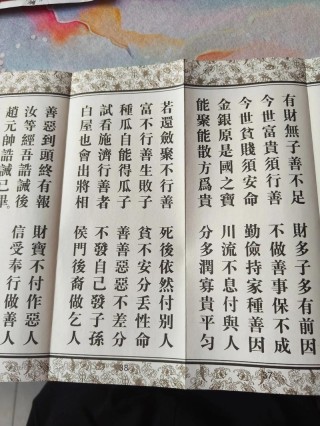 有財無子善不足 財多子多有前因
今世富貴須行善 不做善事保不成
今世貧賤須安命 勤儉持家種善因
金銀原是國之寶 川流不息付與人
能聚能散方爲貴 分多潤寡貴平勻
87
若還斂聚不行善 死後依然付別人
富不行善生敗子 貧不安分丟性命
種瓜自能得瓜子 善善惡惡不差分
試看施濟行善者 不發自己發子孫
白屋也會出將相 侯門後裔做乞人
88
善惡到頭終有報 財寶不付作惡人
汝等經吾誥誡後 信受奉行做善人
趙元帥誥誡已畢